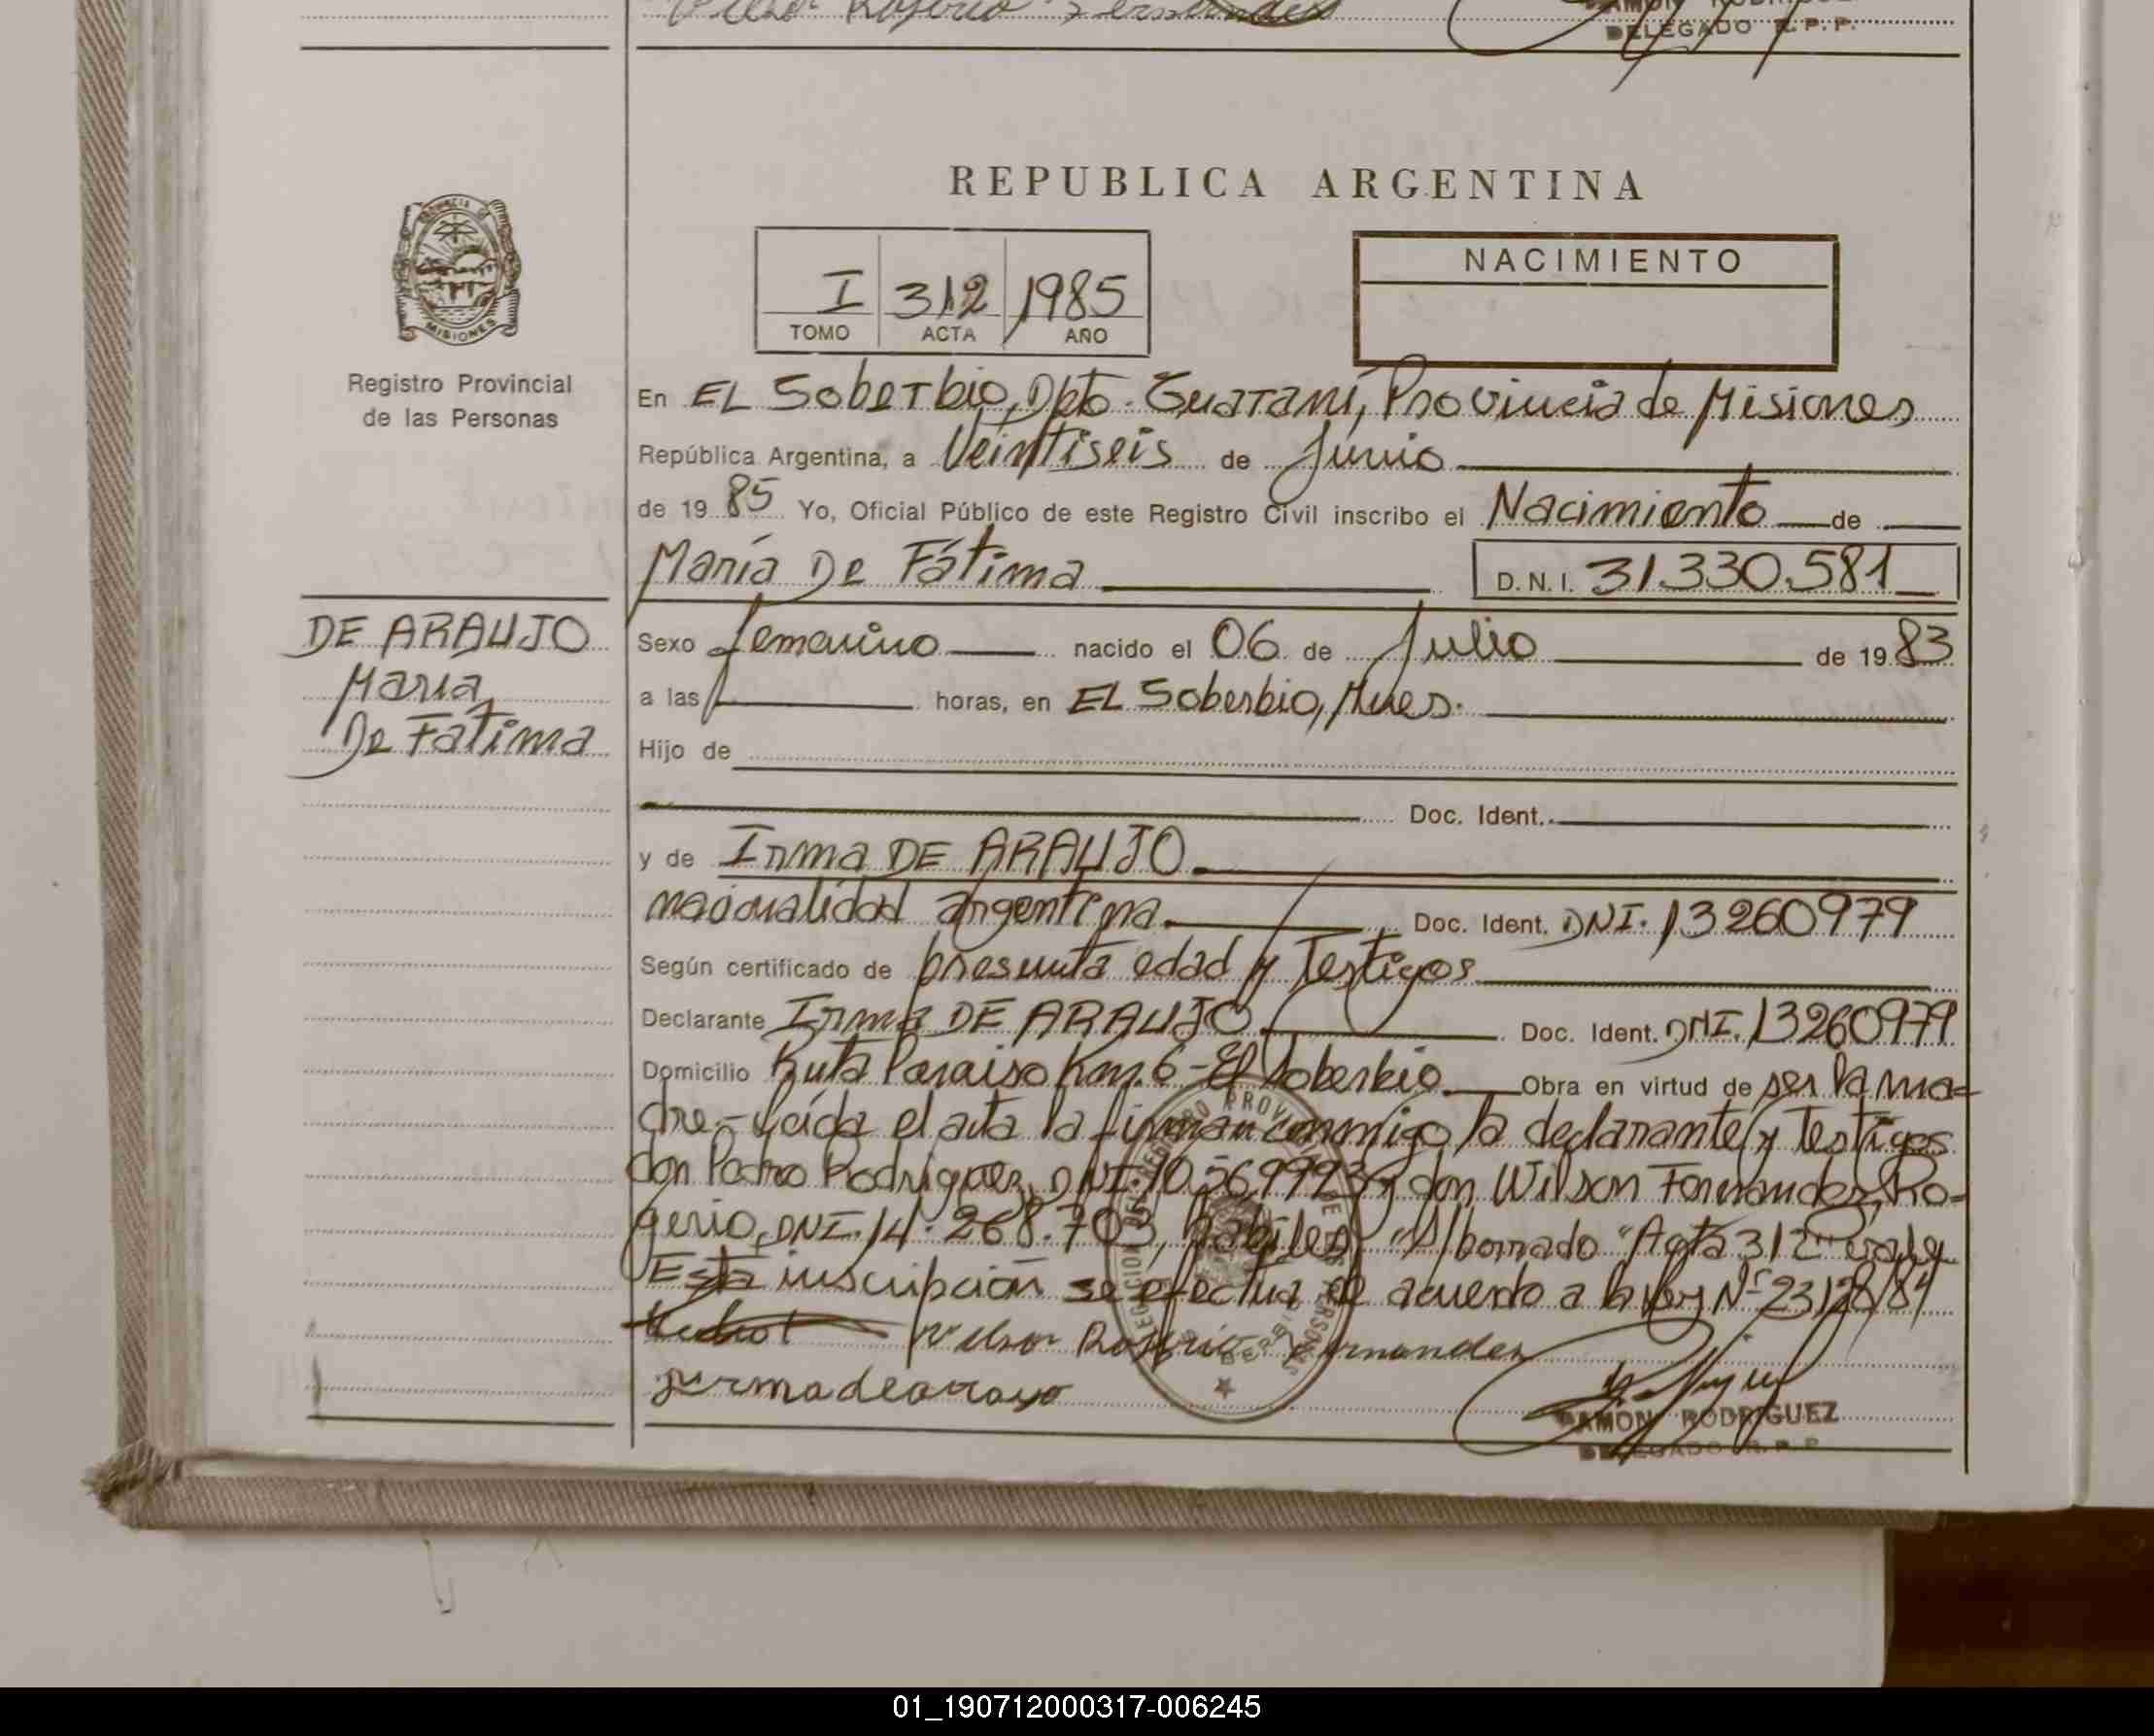 Rogerio Fernandez
RAMON RODRIGUEZ
DELEGADO R.P.P.
REPUBLICA ARGENTINA
PROVINCIA DE
MISIONES
Registro Provincial
de las Personas
I 312 1985
TOMO ACTA AÑO
NACIMIENTO
En EL Soberbio, Dpto. Guaraní, Provincia de Misiones
República Argentina, a Veintiseis de Junio
de 19 85 Yo, Oficial Público de este Registro Civil inscribo el Nacimiento de
María De Fátima D.N.I. 31.330.581
DE ARAUJO
María
De Fátima
Sexo femenino nacido el 06 de Julio de 19 83
a las horas, en EL Soberbio, Mnes.
Hijo de
Doc. Ident.
y de Irma DE ARAUJO
nacionalidad argentina. Doc. Ident. DNI. 13260979
Según certificado de presunta edad y Testigos
Declarante Irma DE ARAUJO Doc. Ident. DNI. 13260979
Domicilio Ruta Paraiso Km. 6 - El Soberbio Obra en virtud de ser la ma=
dre.- Leída el acta la firman conmigo la declarante y Testigos
don Pedro Rodriguez, DNI. 10.569993 y don Wilson Fernandez, Ro-
gerio, DNI. 14.268.703, habiles, "S/borrado "Acta 312" vale
Esta inscripción se efectua de acuerdo a la ley Nº 23128/84
Rogerio Fernandez
RAMON RODRIGUEZ
DELEGADO R.P.P
01_190712000317-006245